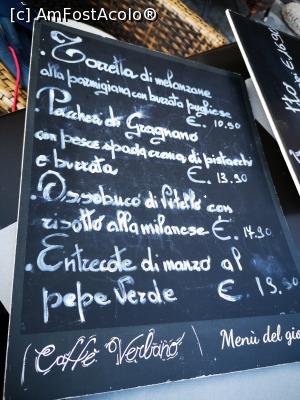 [c] AmFostAcolo®
. Torretta di melanzane
alla parmigiana con burrata pugliese
€. 10.90
. Paccheri di Gragnano
con pesce spada crema di pistacchi
e burrata €. 13.90
. Ossobuco di Vitello con
risotto alla milanese €. 17.90
. Entrecote di manzo al
pepe verde €. 19.90
Caffè Verbano
Menù del gio